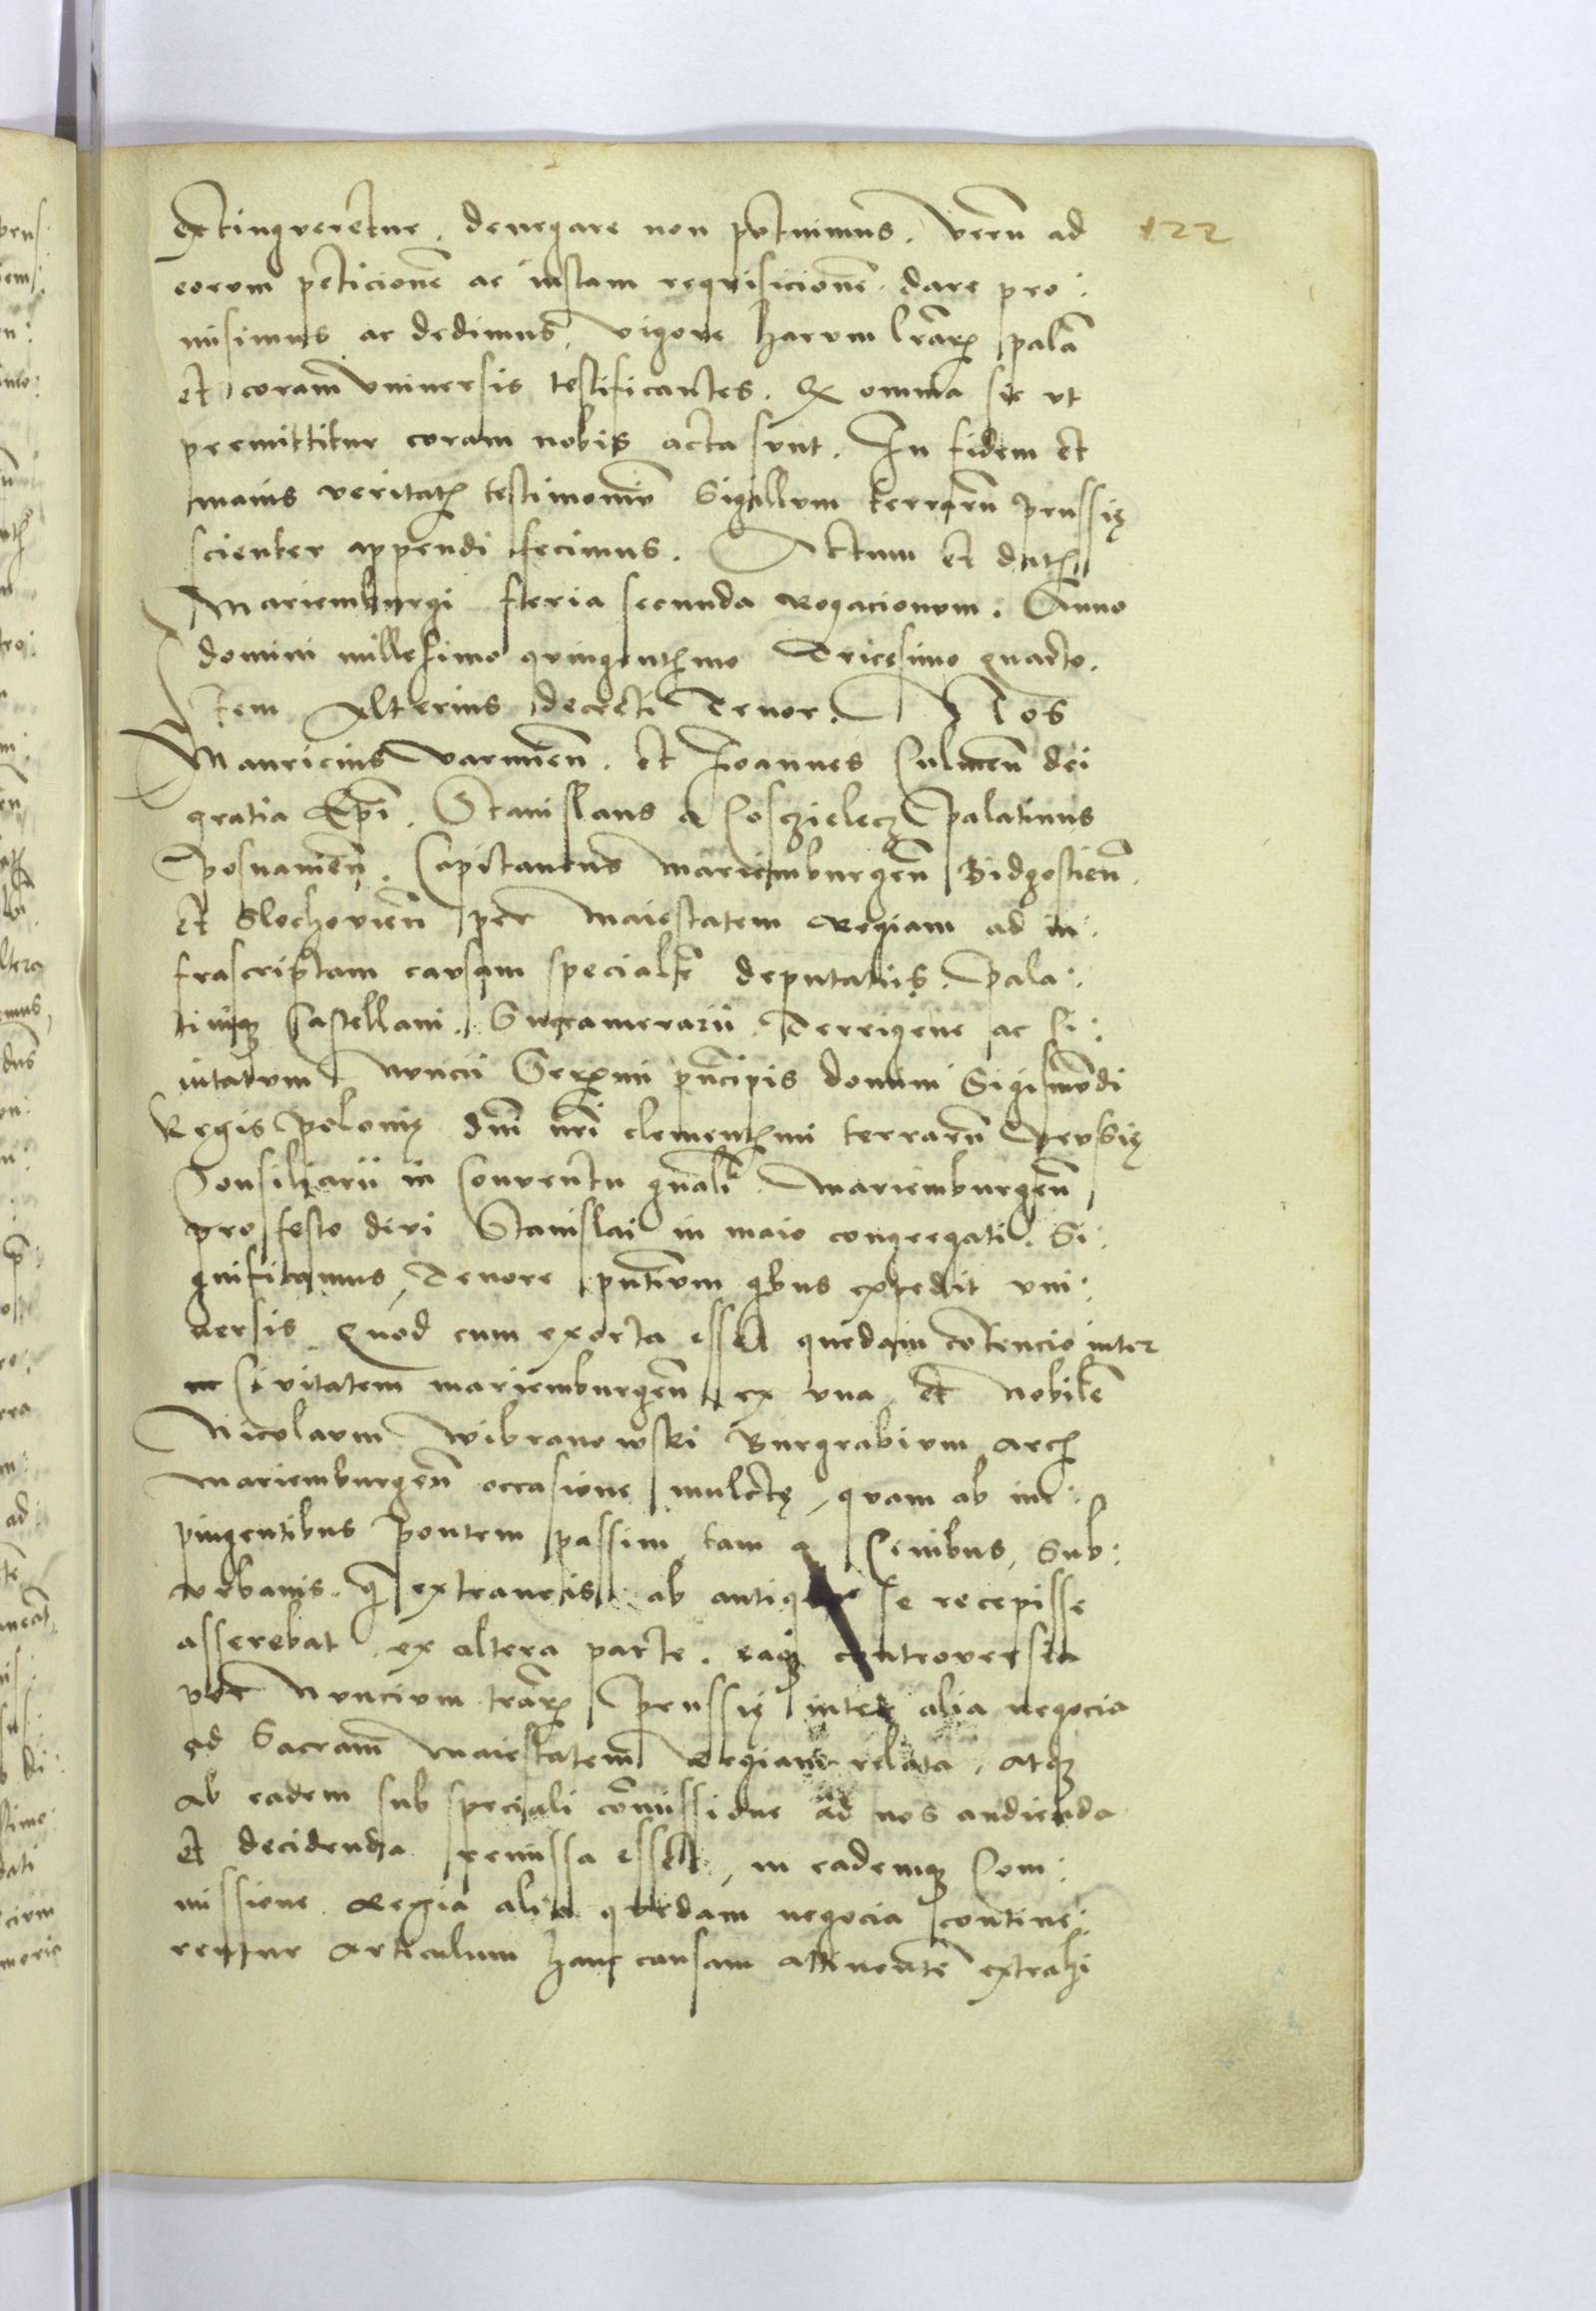 extingveretur. denegare non potuimus. Verũ ad 122
eorum peticionẽ ac iustam reqvisicionẽ dare pro:
misimus ac dedimus, vigore harum lrãrꝝ palã
et coram vniversis testificantes. Qx omnia sic vt
premittitur coram nobis acta sunt. In fidem et
maius veritatꝭ testimoniũ Sigillum terrarũ prussię
scienter appendi fecimus. Actum et datꝭ
Mariemburgi feria secunda Rogacionum. Anno
domini millesimo qvingentꝭmo Tricesimo quarto.
Item Alterius decreti Tenor. Nos
Mauricius varmieñ. et Joannes Culmeñ dei
gratia Ep̃i. Stanislaus a Cosczielecz Palatinus
Posnanieñ. Capitaneus Mariemburgeñ Bidgostieñ.
et Slochovieñ per Maiestatem Regiam ad in:
frascriptam causam specialr̃ deputatus. Pala:
tiniqꝫ Castellani. Succamerarii. Terrigene ac Ci:
uitatum Nuncii Serꝭmi pñcipis domini Sigismũdi
Regis Polonię dñi nr̃i clementꝭmi terrarũ Prussię
Consiliarii in Conventu gñali Mariemburgeñ
pro festo divi Stanislai in maio congregati. Si:
gnificamus, Tenore pñtium qbus expedit vni:
versis Quod cum exorta esset quedam cõtencio inter
Civitatem mariemburgeñ ex vna et Nobilẽ
Nicolaum Wibranowski Burgrabium Arcꝭ
Mariemburgeñ occasione mulctę, quam ab im:
pingentibus Pontem passim tam a Civibus, Sub:
urbanis. q̃ extraneis ab antiquo se recepisse
asserebat ex altera parte. eaqꝫ controversia
per Nuncium trãrꝝ Prussię inter alia negocia
ad Sacram Maiestatem Regiam relata, atqꝫ
Ab eadem sub speciali cõmissione ad nos audienda
et decidenda remissa esset, in eademqꝫ Com:
missione Regia alia quedam negocia contine:
rentur Articulum hanc causam attinentẽ extrahi